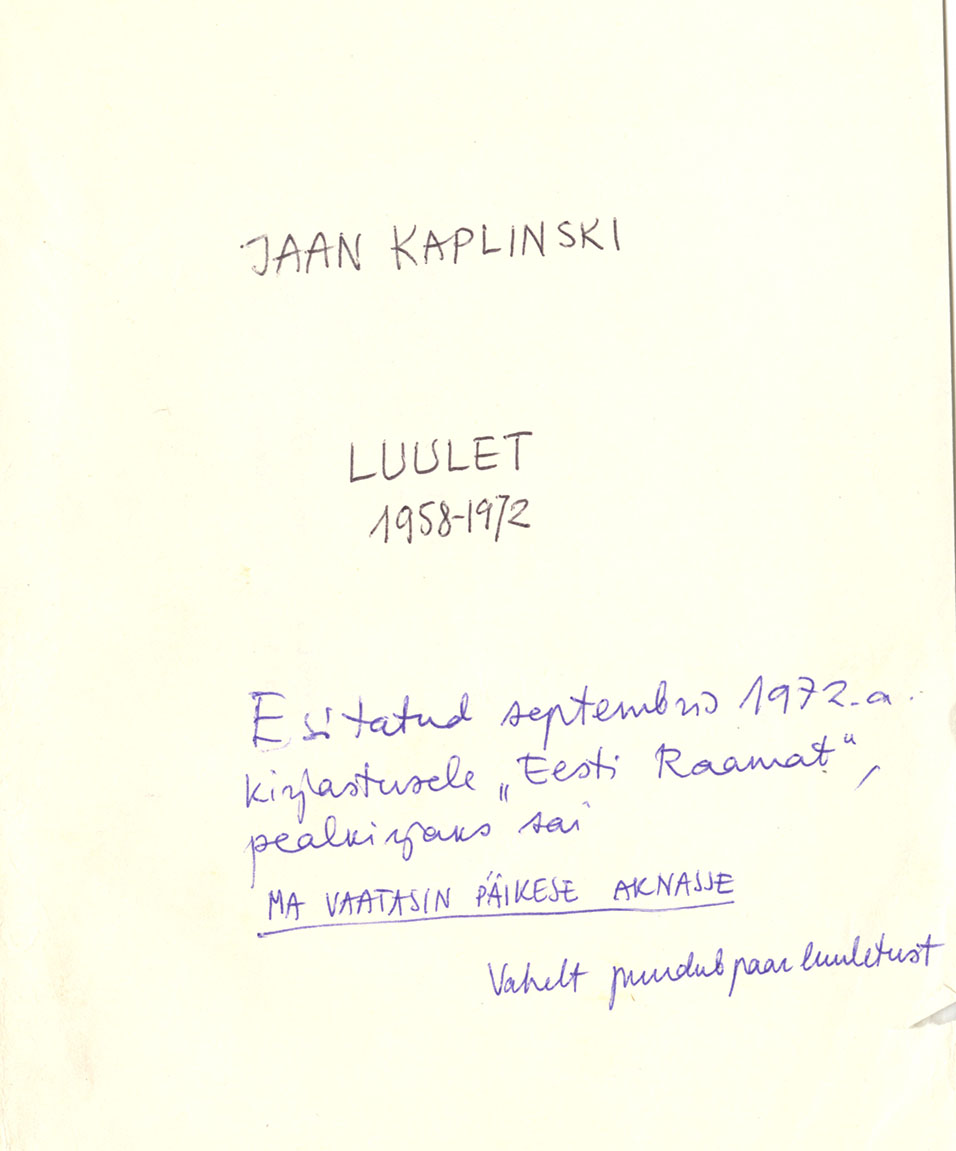 JAAN KAPLINSKI
LUULET
1958-1972
Esitatud septembris 1972.a.
kirjastusele „Eesti Raamat“,
pealkirjaks sai
MA VAATASIN PÄIKESE AKNASSE
Vahelt puudub paar luuletust